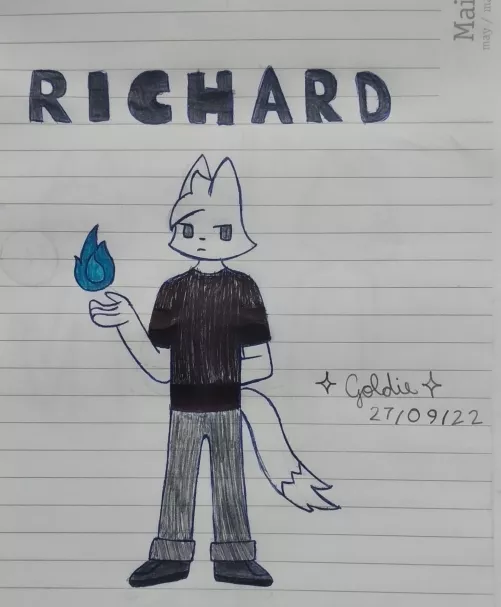 Mai
may / m
RICHARD
Goldie
27/09/22